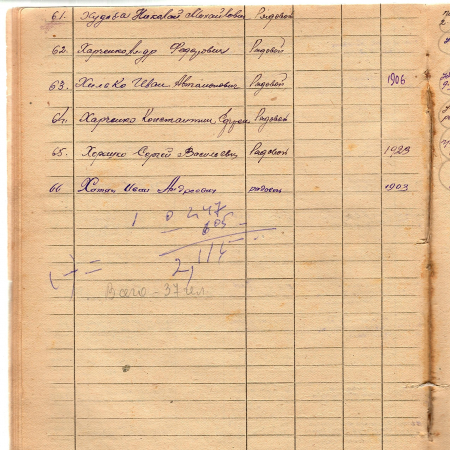 61. Худоба Николай Михайлович Рядовой
62. Харченко Федорович Рядовой
63. Хилько Иван Рядовой 1906
64. Харченко Константин Рядовой
65. Сергей Васильевич Рядовой 1923
66 Хотин Иван Андреевич рядовой 1903
1 0 247
605
2,114
Всего - 37 чел.